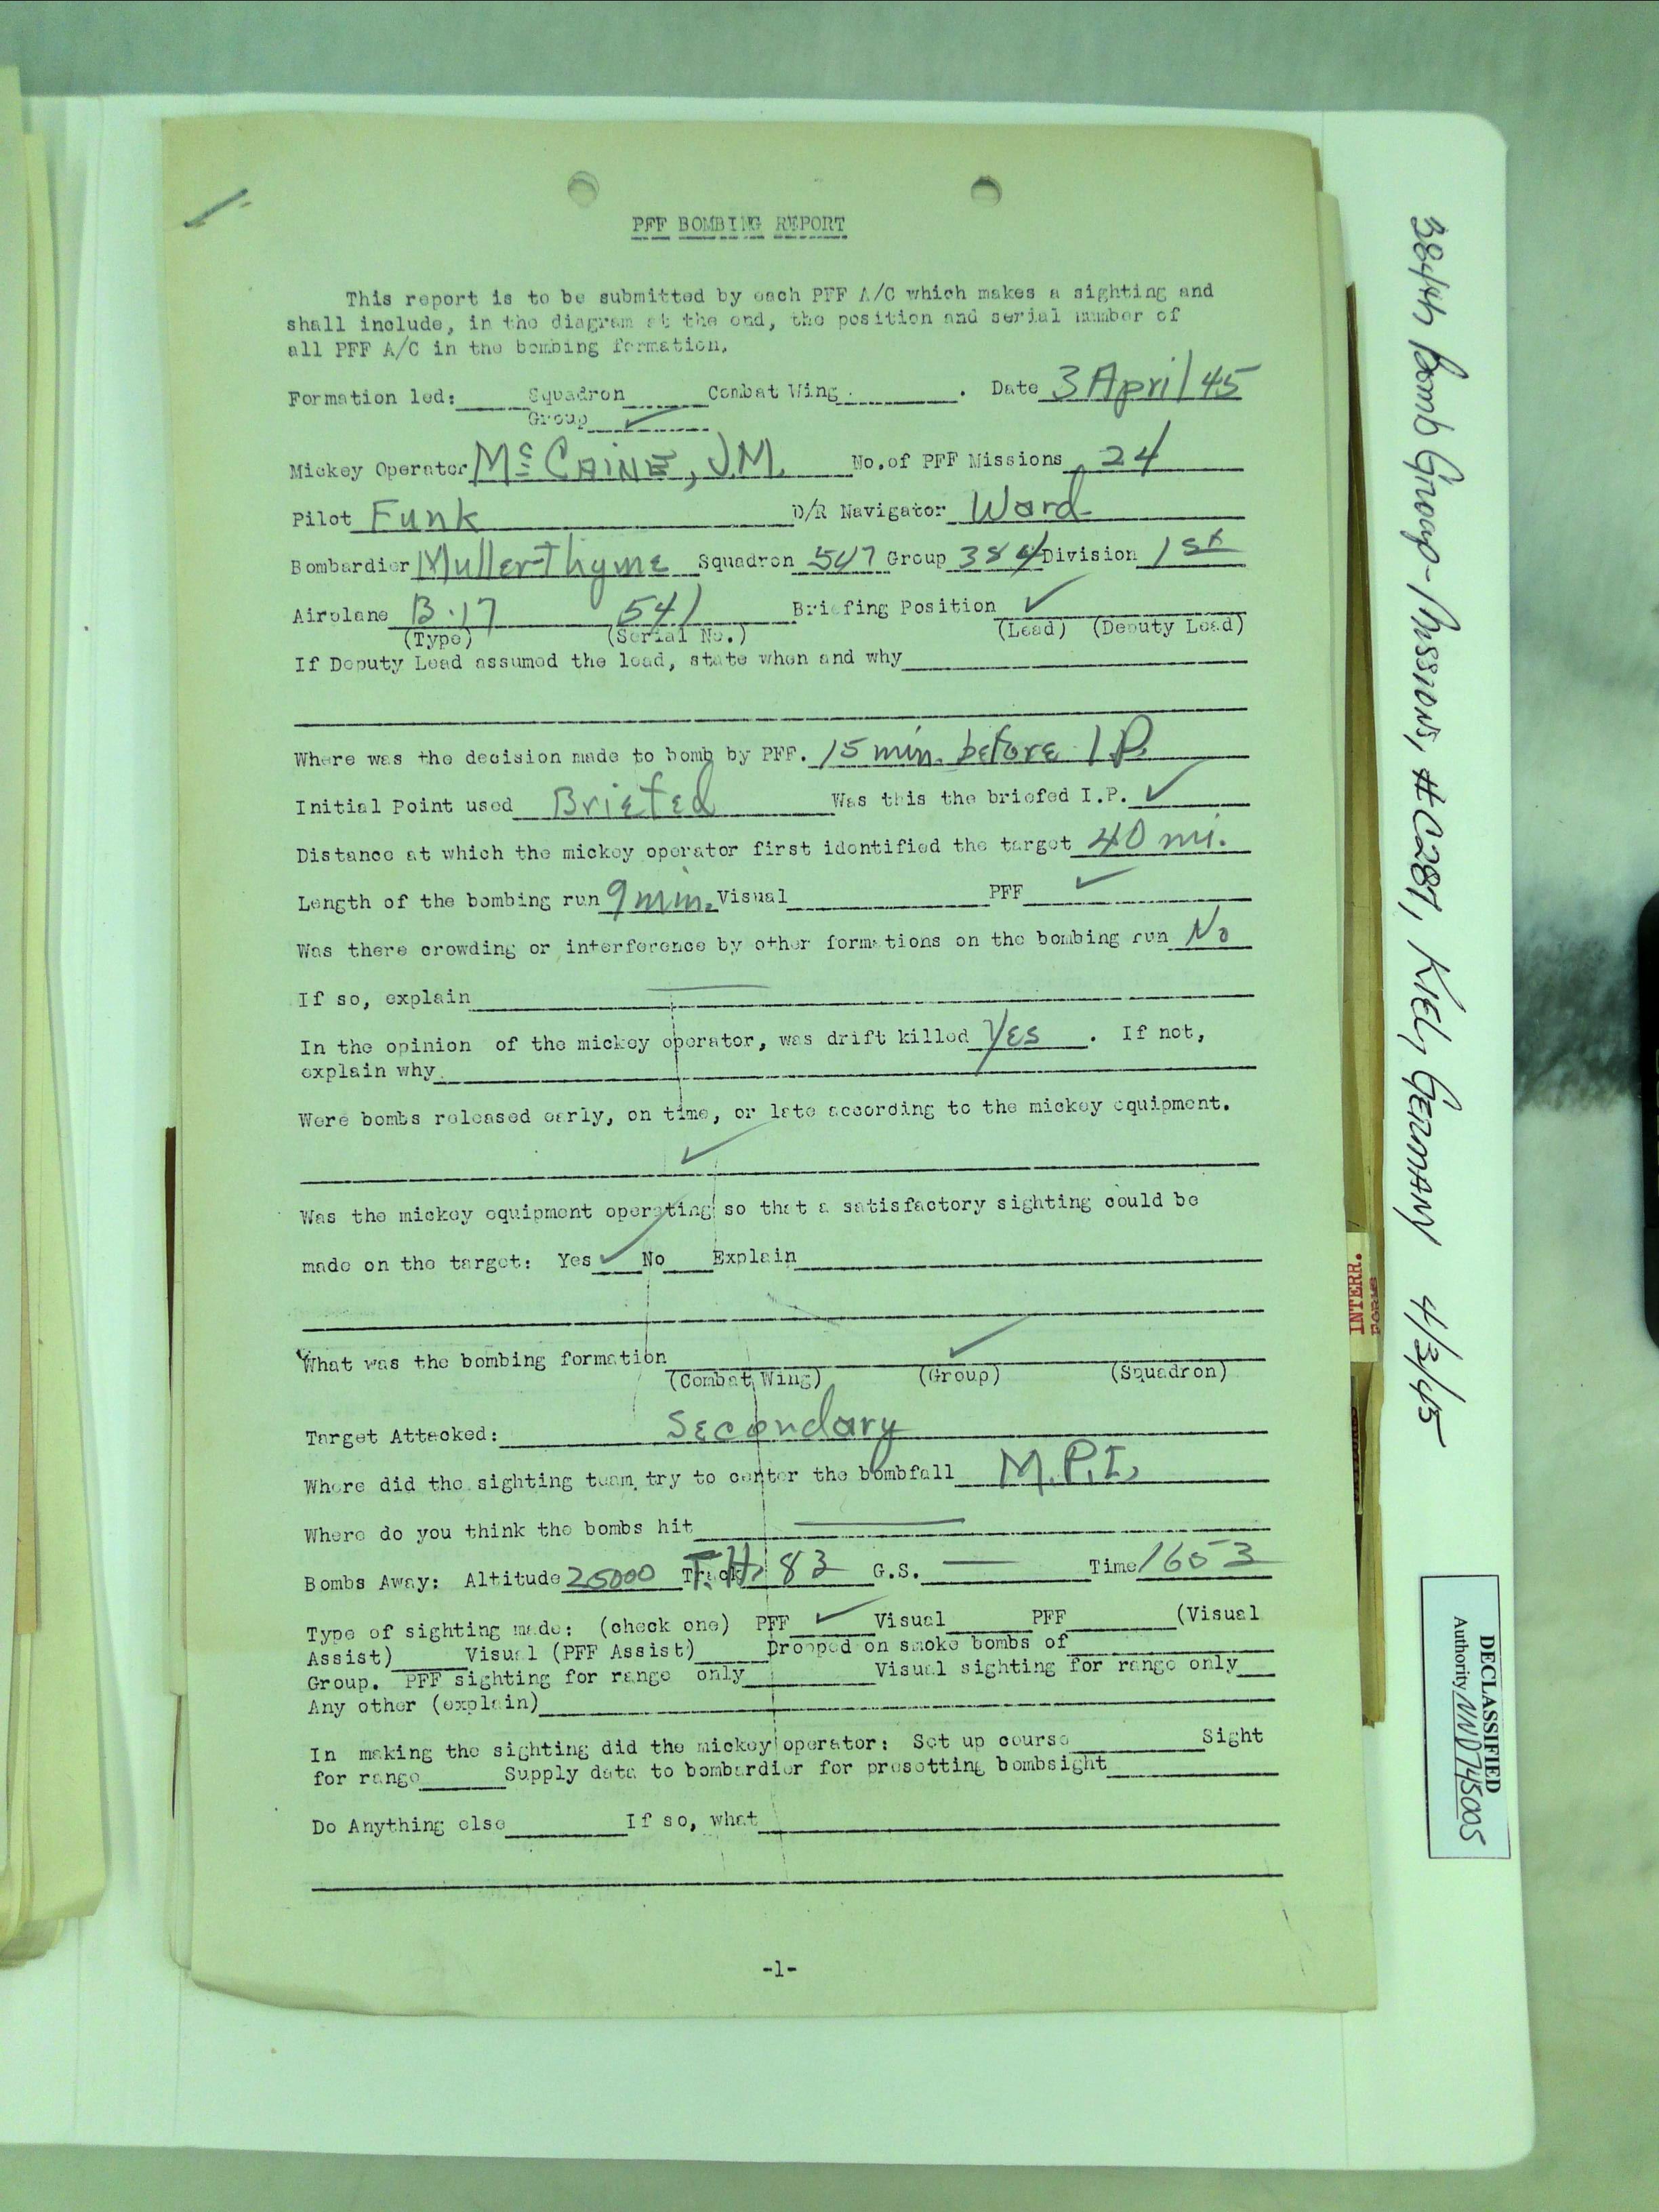 PFF BOMBING REPORT
This report is to be submitted by each PFF A/C which makes a sighting and
shall include, in the diagram at the end, the position and serial number of
all PFF A/C in the bombing formation.
Formation led:_____Squadron______Combat Wing________. Date 3 April 45
Group ✓
Mickey Operator McCAINE, J.M. No.of PFF Missions 24
Pilot Funk D/R Navigator Ward
Bombardier Muller-Thyme Squadron 547 Group 384 Division 1st
Airplane B-17 541 Briefing Position ✓
(Type) (Serial No.) (Lead) (Deputy Lead)
If Deputy Lead assumed the lead, state when and why
Where was the decision made to bomb by PFF. 15 min. before I.P.
Initial Point used Briefed Was this the briefed I.P. ✓
Distance at which the mickey operator first identified the target 40 mi.
Length of the bombing run 9 min. Visual PFF ✓
Was there crowding or interference by other formations on the bombing run No
If so, explain —
In the opinion of the mickey operator, was drift killed Yes. If not,
explain why
Were bombs released early, on time, or late according to the mickey equipment.
✓
Was the mickey equipment operating so that a satisfactory sighting could be
made on the target: Yes ✓ No Explain
What was the bombing formation ✓
(Combat Wing) (Group) (Squadron)
Target Attacked: Secondary
Where did the sighting team try to center the bombfall M.P.I.
Where do you think the bombs hit —
Bombs Away: Altitude 25000 Track T.H. 83 G.S. — Time 1653
Type of sighting made: (check one) PFF ✓ Visual PFF (Visual
Assist) Visual (PFF Assist) Dropped on smoke bombs of
Group. PFF sighting for range only Visual sighting for range only
Any other (explain)
In making the sighting did the mickey operator: Set up course Sight
for range Supply data to bombardier for presetting bombsight
Do Anything else If so, what
-1-
384th Bomb Group-Missions, #C281, KIEL, GERMANY 4/3/45
INTERR.
FORMS
DECLASSIFIED
Authority NND745005